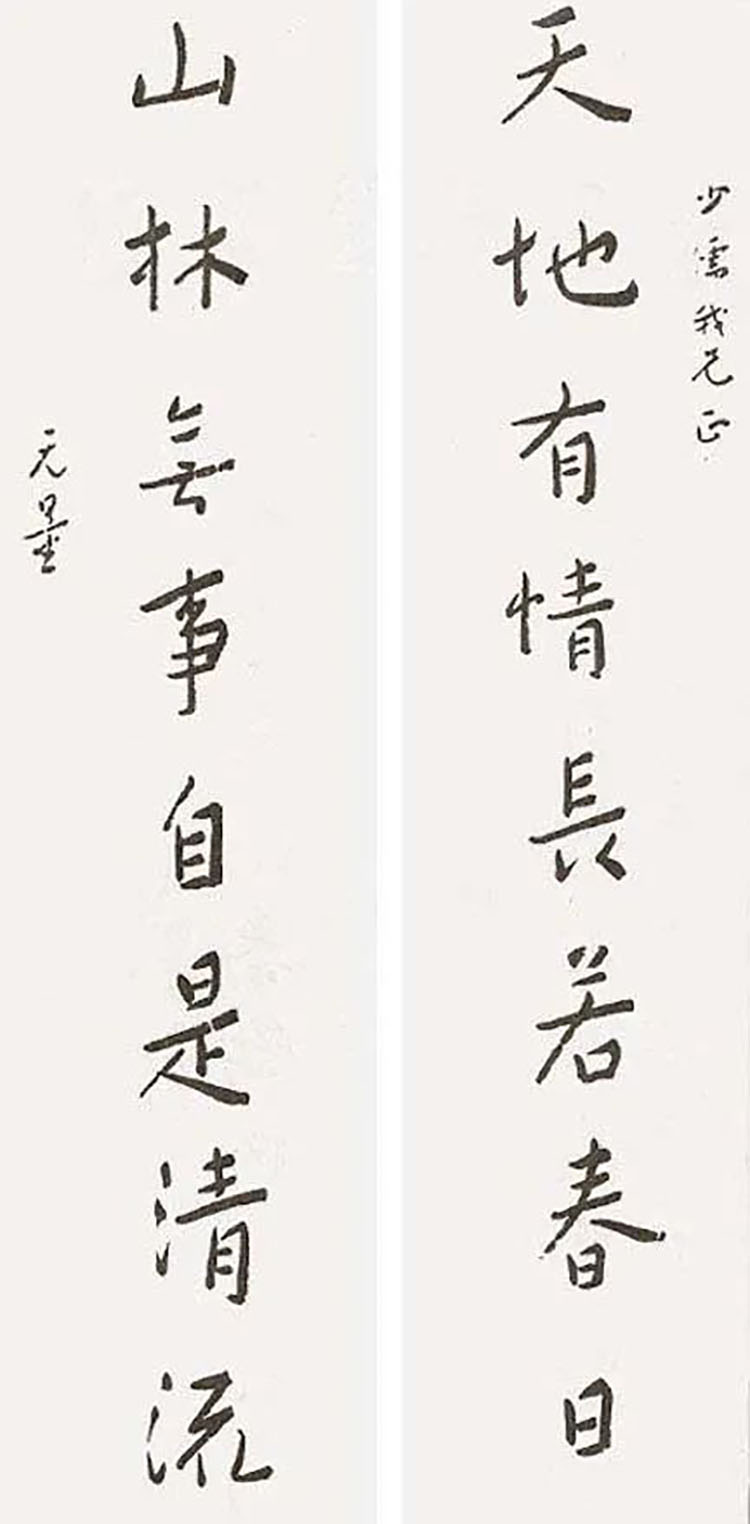 少儒我兄正
天地有情長若春日
山林無事自是清流
无量